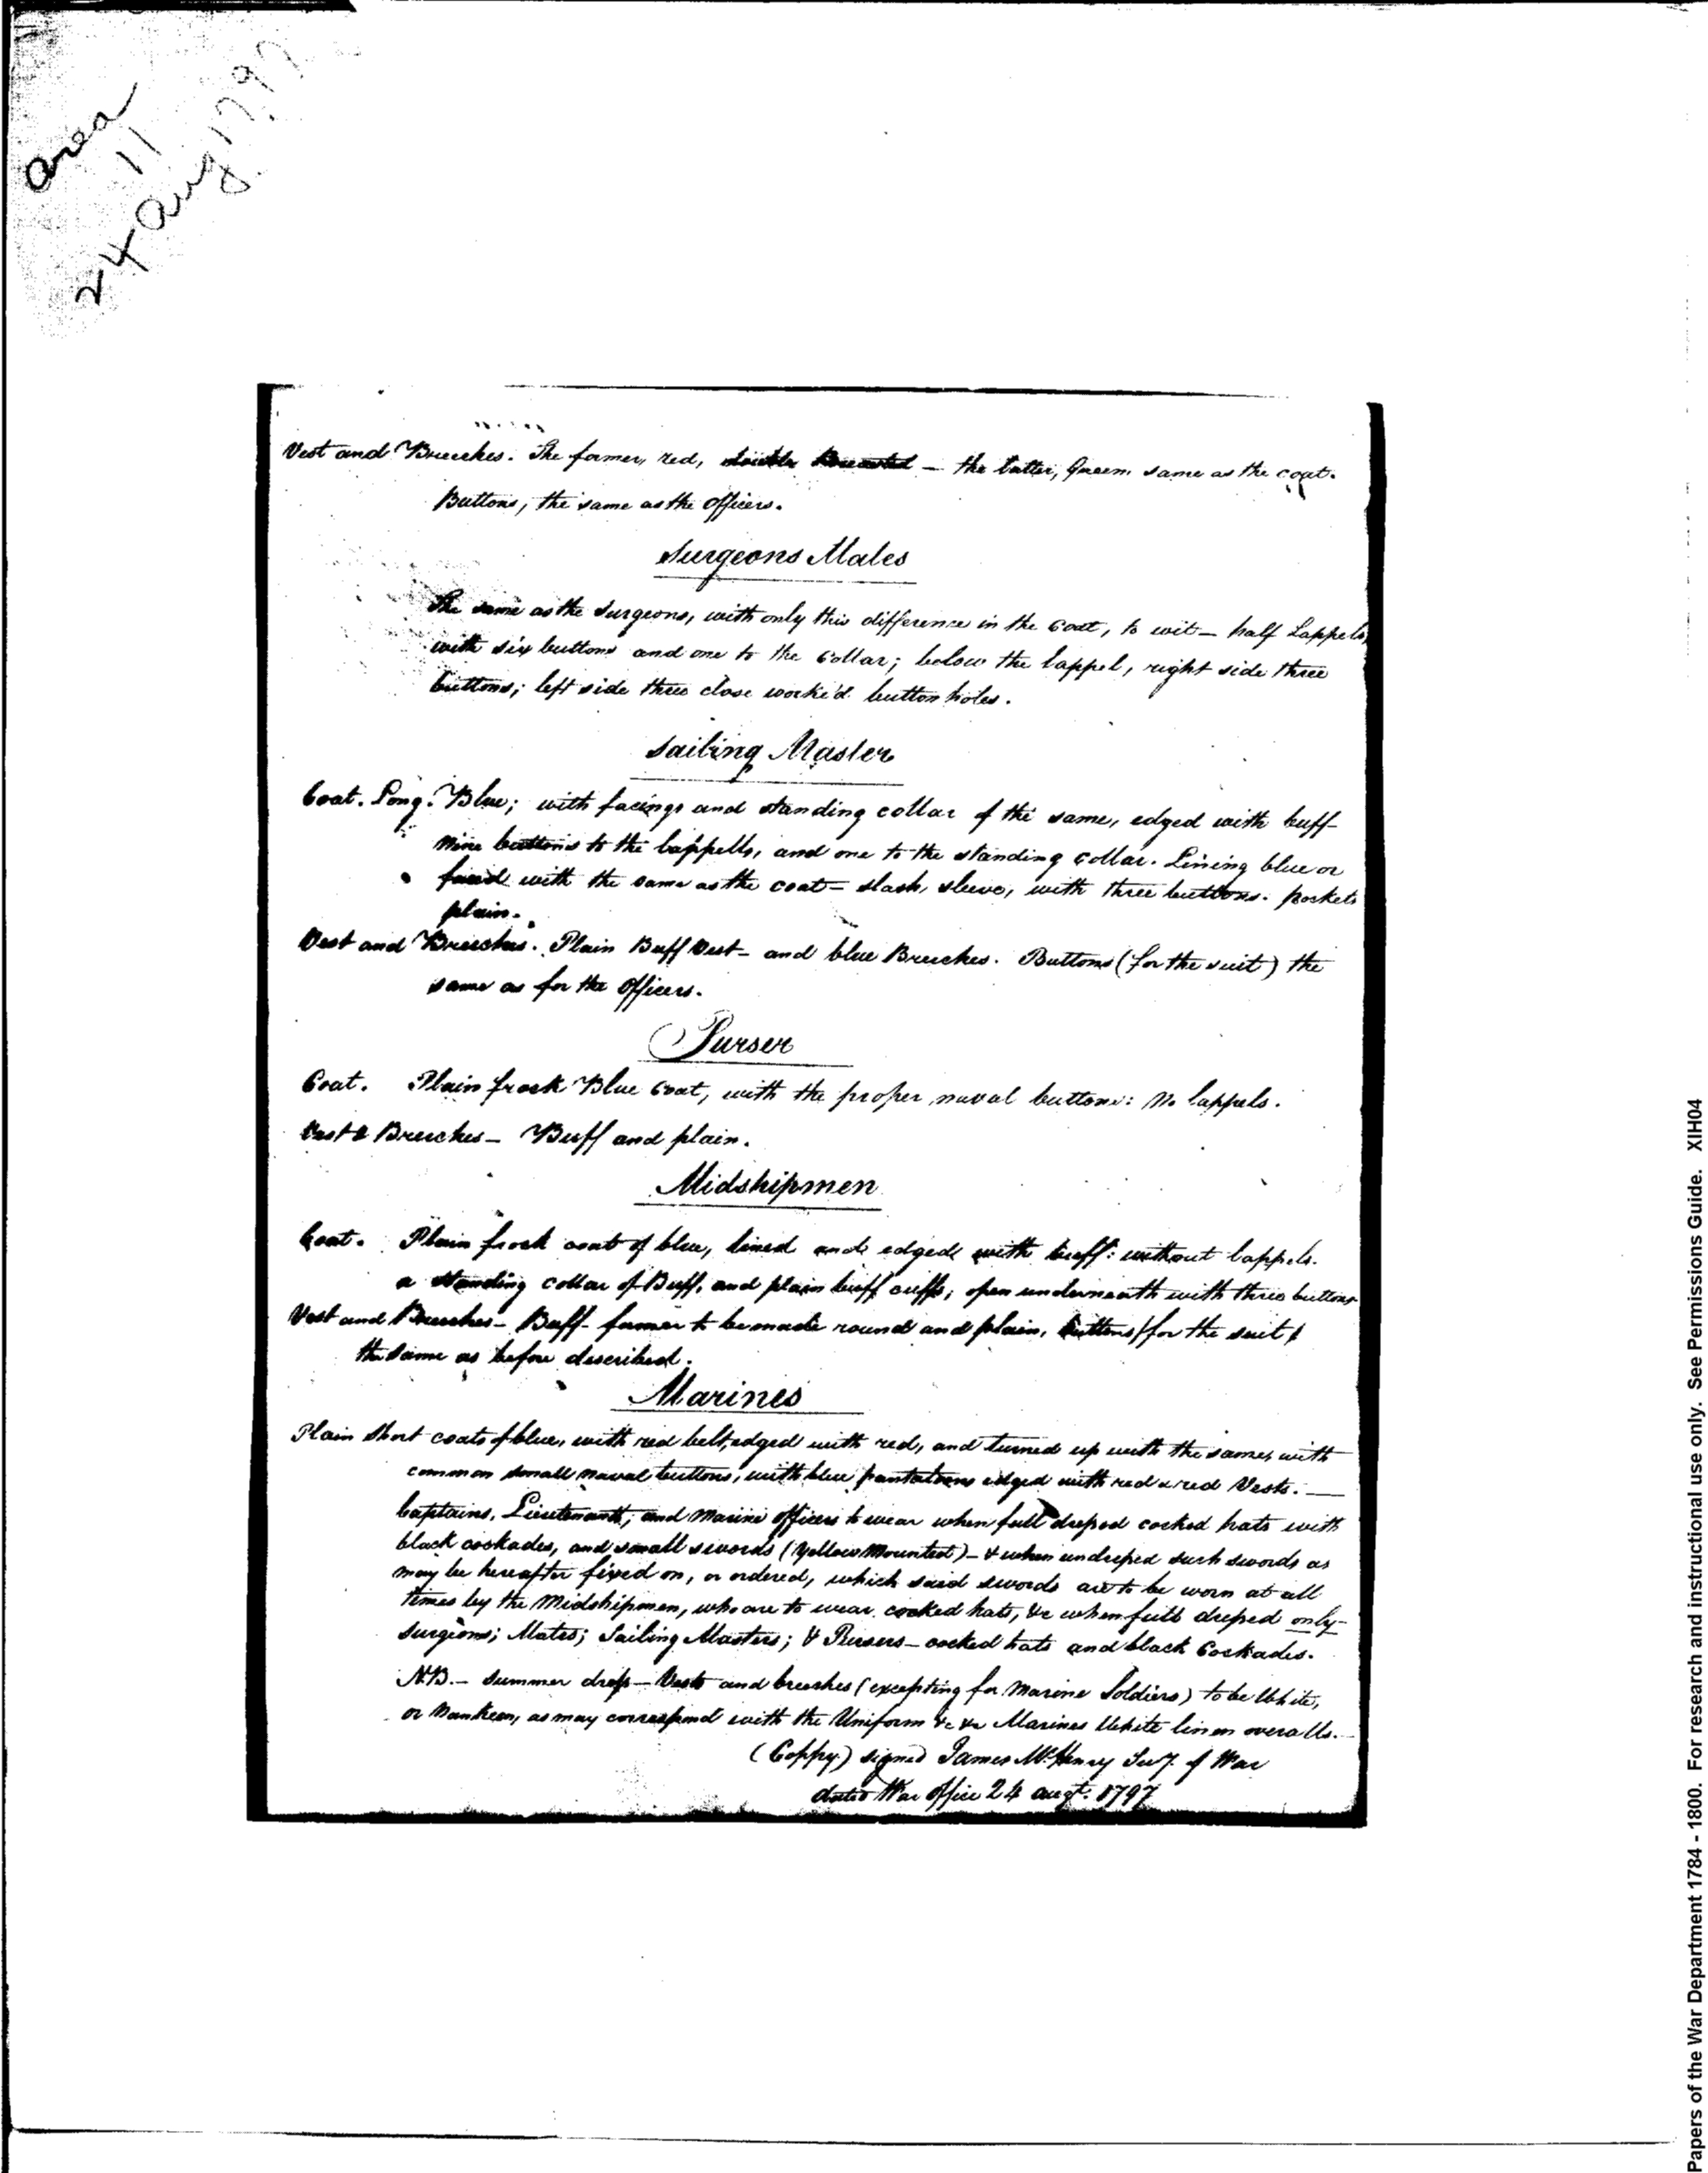 area
11
24 Aug 1797
Vest and Breeches. The former, red, double Breasted – the latter, Green same as the coat.
Buttons, the same as the officers.
Surgeons Mates
The same as the Surgeons, with only this difference in the Coat, to wit – half Lappels,
with six buttons and one to the Collar; below the lappel, right side three
buttons; left side three close worked button holes.
Sailing Master
Coat. Long. Blue; with facings and standing collar of the same, edged with buff –
Nine buttons to the lappells, and one to the standing collar. Lining blue or
faced with the same as the coat – slash sleeve, with three buttons. pockets
plain.
Vest and Breeches. Plain Buff Vest – and blue Breeches. Buttons (for the suit) the
same as for the Officers.
Purser
Coat. Plain frock Blue Coat, with the proper naval buttons: No lappels.
Vest & Breeches – Buff and plain.
Midshipmen
Coat. Plain frock coat of blue, lined and edged with buff: without lappels.
a standing collar of Buff, and plain buff cuffs; open underneath with three buttons
Vest and Breeches – Buff – former to be made round and plain, buttons (for the suit)
the same as before described.
Marines
Plain short coats of blue, with red belt, edged with red, and turned up with the same, with
common small naval buttons, with blue pantaloons edged with red & red Vests. —
Captains, Lieutenants, and Marine officers to wear when full dressed cocked hats with
black cockades, and small swords (yellow Mounted) – & when undressed such swords as
may be hereafter fixed on, or ordered, which said swords are to be worn at all
times by the Midshipmen, who are to wear cocked hats, &c when full dressed only –
Surgeons; Mates; Sailing Masters; & Pursers – cocked hats and black Cockades.
NB. – Summer dress – Vests and breeches (excepting for Marine Soldiers) to be White,
or Nankeen, as may correspond with the Uniform &c &c Marines White linen overalls. –
(Coppy) signed James McHenry Secy. of War
dated War office 24 augt. 1797
Papers of the War Department 1784 - 1800. For research and instructional use only. See Permissions Guide. XIH04